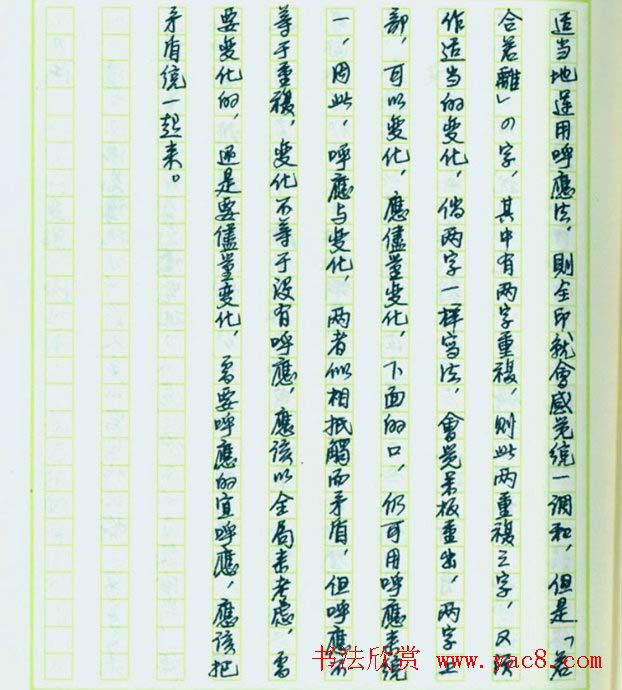 适当地运用呼應法，则全印就會感觉统一调和，但是「若
合若離」の字，其中有两字重複，则此两重複之字，又须
作适当的变化，倘两字一样写法，會觉呆板重出，两字上
部，可以变化，應儘量变化，下面的口，仍可用呼應来统
一，因此，呼應与变化，两者似相抵觸而矛盾，但呼應不
等于重複，变化不等于没有呼應，應该以全局来考虑，需
要变化的，还是要儘量变化，需要呼應的宜呼應，應该把
矛盾统一起来。
书法欣赏 www.yac8.com